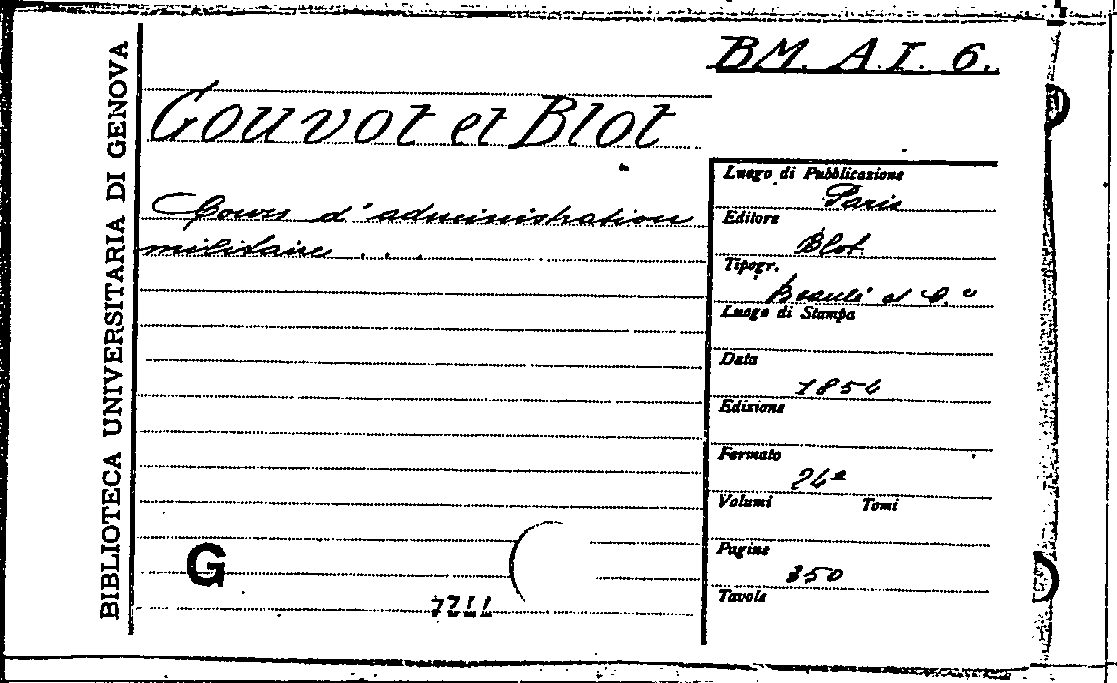 BIBLIOTECA UNIVERSITARIA DI GENOVA
BM. A.I. 6.
Gouvot et Blot
Cours d'administration
militaire . . .
Luogo di Pubblicazione
Paris
Editore
Blot
Tipogr.
et C.ie
Luogo di Stampa
Data
1854
Edizione
Formato
24º
Volumi Tomi
Pagine
350
Tavole
G
7711